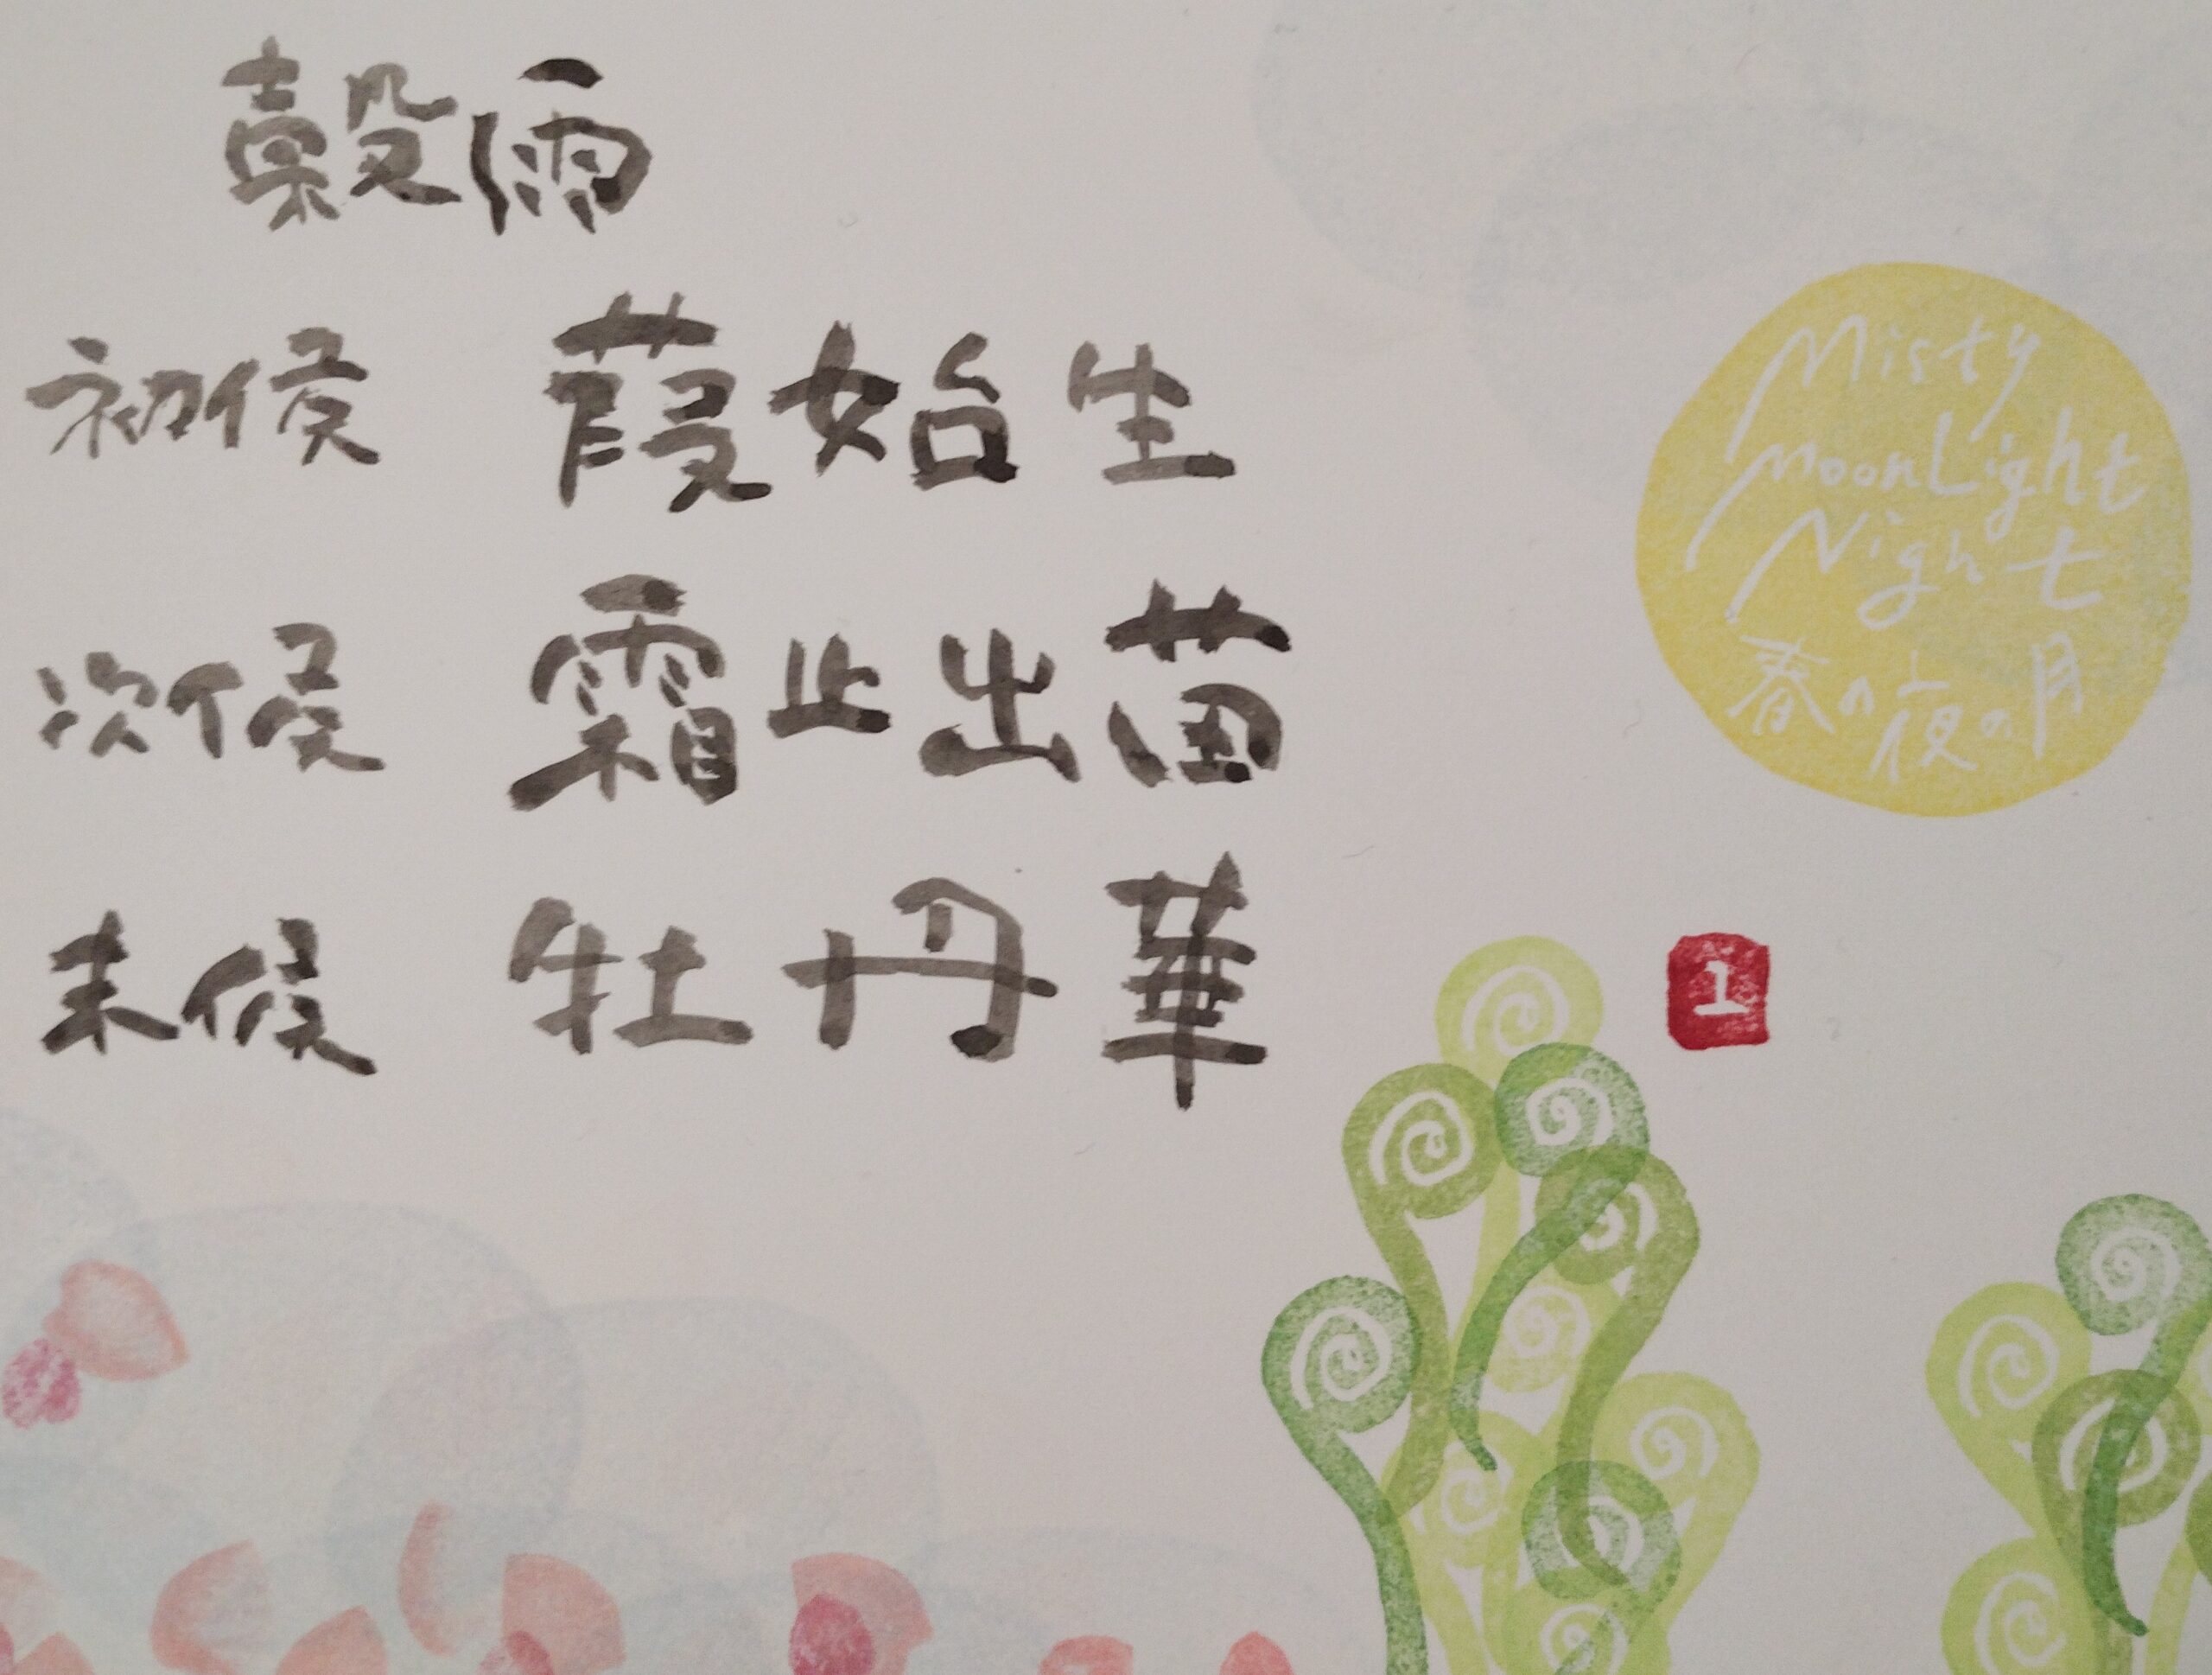 穀雨
初候 葭始生
次候 霜止出苗
末候 牡丹華
Misty
MoonLight
Night
春の夜の月
1